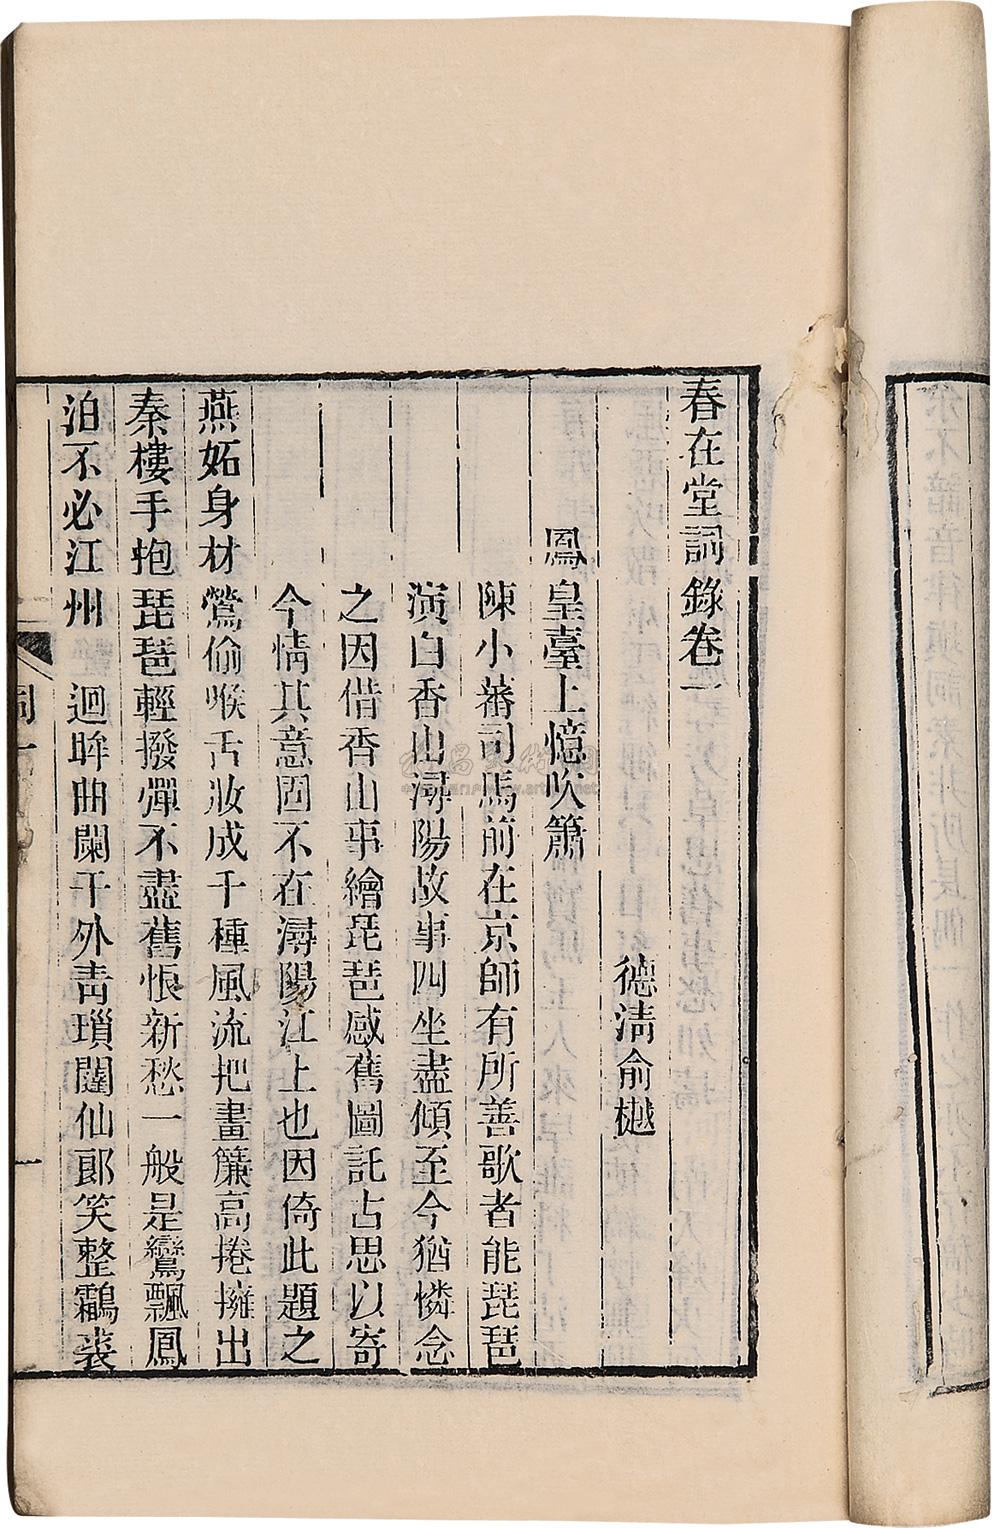 春在堂詞錄卷一
德清俞樾
鳳皇臺上憶吹簫
陳小蕃司馬前在京師有所善歌者能琵琶
演白香山潯陽故事四坐盡傾至今猶憐念
之因借香山事繪琵琶感舊圖託古思以寄
今情其意固不在潯陽江上也因倚此題之
燕妬身材鶯偷喉舌妝成千種風流把畫簾高捲擁出
秦樓手抱琵琶輕撥彈不盡舊恨新愁一般是鸞飄鳳
泊不必江州 迴眸曲闌干外青瑣闥仙郎笑整鸘裘